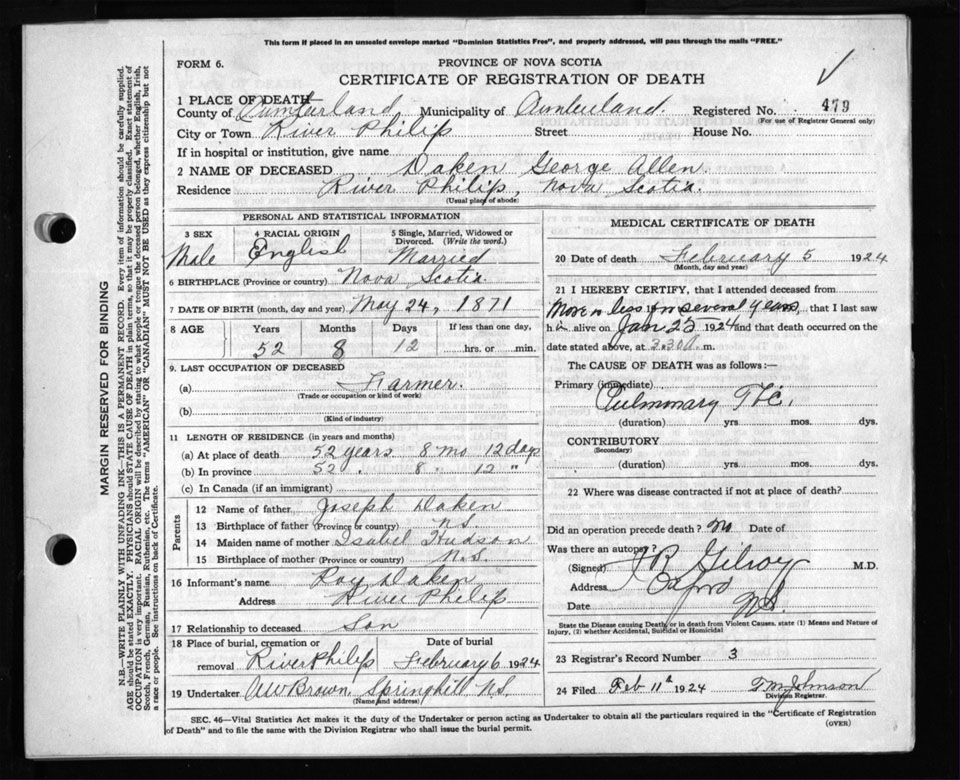 This form if placed in an unsealed envelope marked "Dominion Statistics Free", and properly addressed, will pass through the mails "FREE."
FORM 6.
PROVINCE OF NOVA SCOTIA
CERTIFICATE OF REGISTRATION OF DEATH
1 PLACE OF DEATH
County of Cumberland Municipality of Cumberland. Registered No. 479
(For use of Registrar General only)
City or Town River Philip Street House No.
If in hospital or institution, give name
2 NAME OF DECEASED Daken George Allen.
Residence River Philip, Nova Scotia.
(Usual place of abode)
PERSONAL AND STATISTICAL INFORMATION
3 SEX 4 RACIAL ORIGIN 5 Single, Married, Widowed or Divorced. (Write the word.)
Male English Married
6 BIRTHPLACE (Province or country) Nova Scotia
7 DATE OF BIRTH (month, day and year) May 24, 1871
8 AGE Years Months Days If less than one day,
52 8 12 hrs. or min.
9. LAST OCCUPATION OF DECEASED
(a) Farmer.
(Trade or occupation or kind of work)
(b)
(Kind of industry)
11 LENGTH OF RESIDENCE (in years and months)
(a) At place of death 52 years 8 mo 12 days
(b) In province 52 " 8 " 12 "
(c) In Canada (if an immigrant)
Parents
12 Name of father Joseph Daken
13 Birthplace of father (Province or country) N.S.
14 Maiden name of mother Isabel Hudson
15 Birthplace of mother (Province or country) N.S.
16 Informant's name Roy Daken
Address River Philip
17 Relationship to deceased Son
18 Place of burial, cremation or Date of burial
removal River Philip February 6 1924
19 Undertaker AW Brown Springhill N.S.
(Name and address)
MEDICAL CERTIFICATE OF DEATH
20 Date of death February 5 1924
(Month, day and year)
21 I HEREBY CERTIFY, that I attended deceased from
More or less for several years, that I last saw
him alive on Jan 25 1924 and that death occurred on the
date stated above, at 3.30 a. m.
The CAUSE OF DEATH was as follows:—
Primary (immediate)
Pulmonary Tbc.
(duration) yrs. mos. dys.
CONTRIBUTORY
(Secondary)
(duration) yrs. mos. dys.
22 Where was disease contracted if not at place of death?
Did an operation precede death? No Date of
Was there an autopsy?
(Signed) JR Gilroy M.D.
Address Oxford
Date N.S.
State the Disease causing Death, or in death from Violent Causes. state (1) Means and Nature of
Injury, (2) whether Accidental, Suicidal or Homicidal
23 Registrar's Record Number 3
24 Filed Feb 11th 1924 Johnson
Division Registrar.
SEC. 46—Vital Statistics Act makes it the duty of the Undertaker or person acting as Undertaker to obtain all the particulars required in the "Certificate of Registration
of Death" and to file the same with the Division Registrar who shall issue the burial permit. (OVER)
MARGIN RESERVED FOR BINDING
N.B.—WRITE PLAINLY WITH UNFADING INK—THIS IS A PERMANENT RECORD. Every item of information should be carefully supplied.
AGE should be stated EXACTLY. PHYSICIANS should STATE CAUSE OF DEATH in plain terms, so that it may be properly classified. Exact statement of
OCCUPATION is very important. RACIAL ORIGIN will be described by stating to what people or tongue the deceased person belonged, whether English, Irish,
Scotch, French, German, Russian, Ruthenian, etc. The terms "AMERICAN" OR "CANADIAN" MUST NOT BE USED as they express citizenship but not
a race or people. See instructions on back of Certificate.